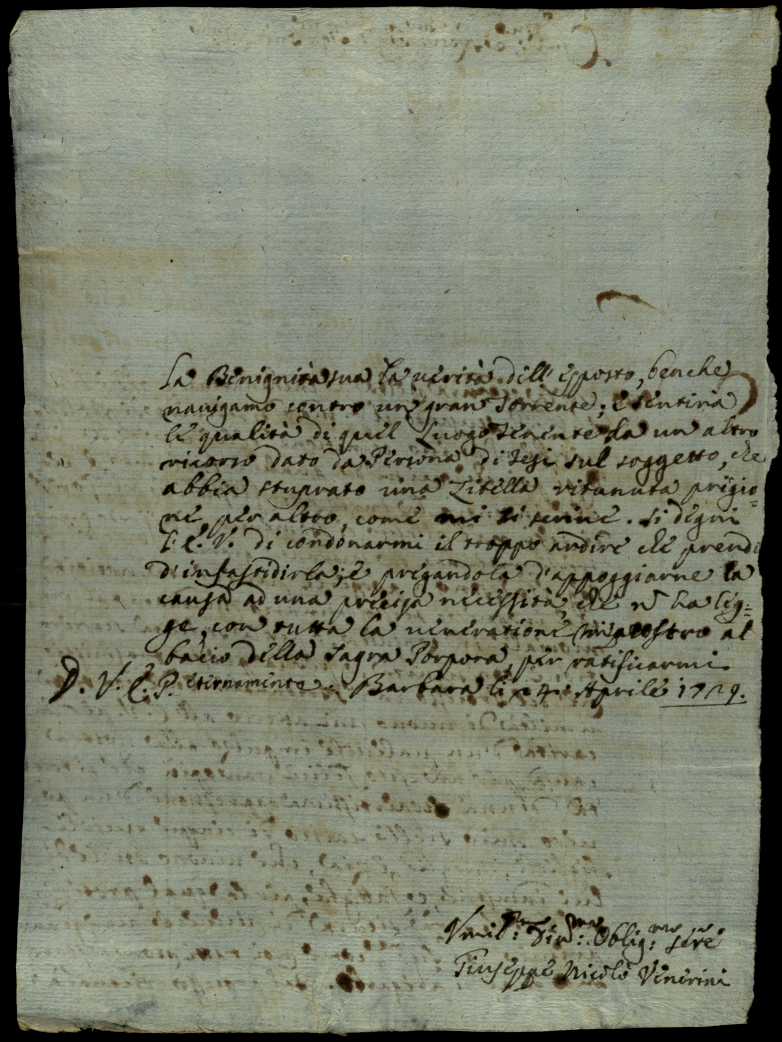 La Benignità sua la verità dell'esposto, benche
navigamo contro un gran Torrente; e sentirà
le qualità di quel Luogotenente da un altro
ricorso dato da Persona di Jesi sul soggetto, che
abbia stuprato una Zitella ritenuta prigio=
ne, per altro, come mi si scrive. Si degni
l'E. V. di condonarmi il troppo ardire che prendo
d'infastidirla; e pregandola d'appoggiarne la
causa ad una precisa necessità che n̄ ha leg=
ge, con tutta la veneratione mi prostro al
bacio della Sagra Porpora, per ratificarmi
D. V. E. P. eternamente. Barbara li 24 Aprile 1729.
Vmil.mo Div.mo Oblig.mo Ser.re
Giuseppe Nicolò Venerini